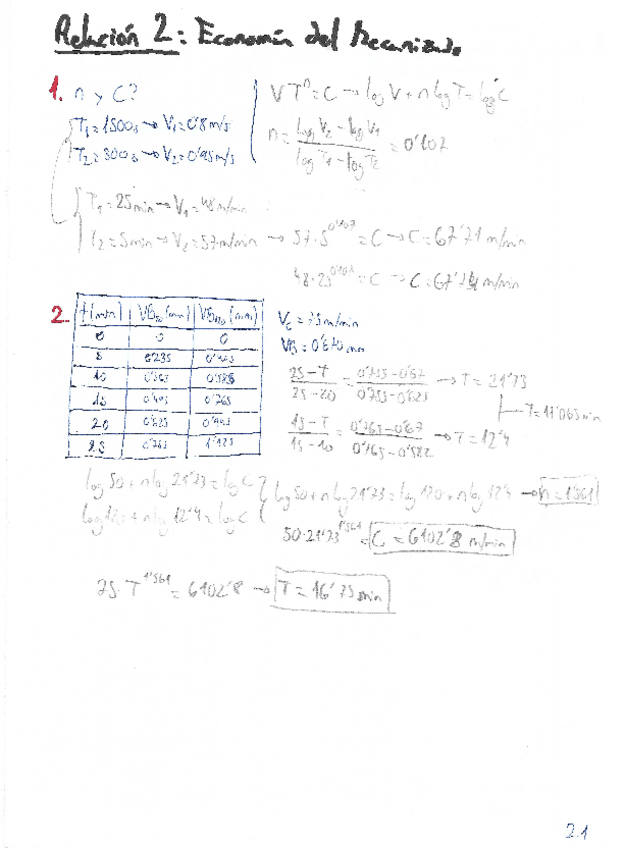 Relación 2: Economía del Mecanizado
1. n y C?
T₁=1500s → V₁=0'8 m/s
T₂=300s → V₂=0'95 m/s
VTⁿ=C → log V + n log T = log C
n = (log V₂ - log V₁)/(log T₁ - log T₂) = 0'107
T₁=25min → V₁=48 m/min
T₂=5min → V₂=57 m/min → 57·5^0'107 = C → C=67'71 m/min
48·25^0'107 = C → C=67'74 m/min
2. t(min) VB50 (mm) VB120 (mm)
0 0 0
5 0'235
10 0'365
15 0'495 0'765
20 0'625
25 0'755 1'125
Vc = 75 m/min
VB = 0'670 mm
(25-T)/(25-20) = (0'755-0'67)/(0'755-0'625) → T=21'73
(15-T)/(15-10) = (0'765-0'67)/(0'765-0'582) → T=12'4
T=17'065min
log 50 + n log 21'73 = log C
log 120 + n log 12'4 = log C
log 50 + n log 21'73 = log 120 + n log 12'4 → n=1'561
50·21'73^1'561 = C = 6102'8 m/min
75·T^1'561 = 6102'8 → T=16'75 min
2.1